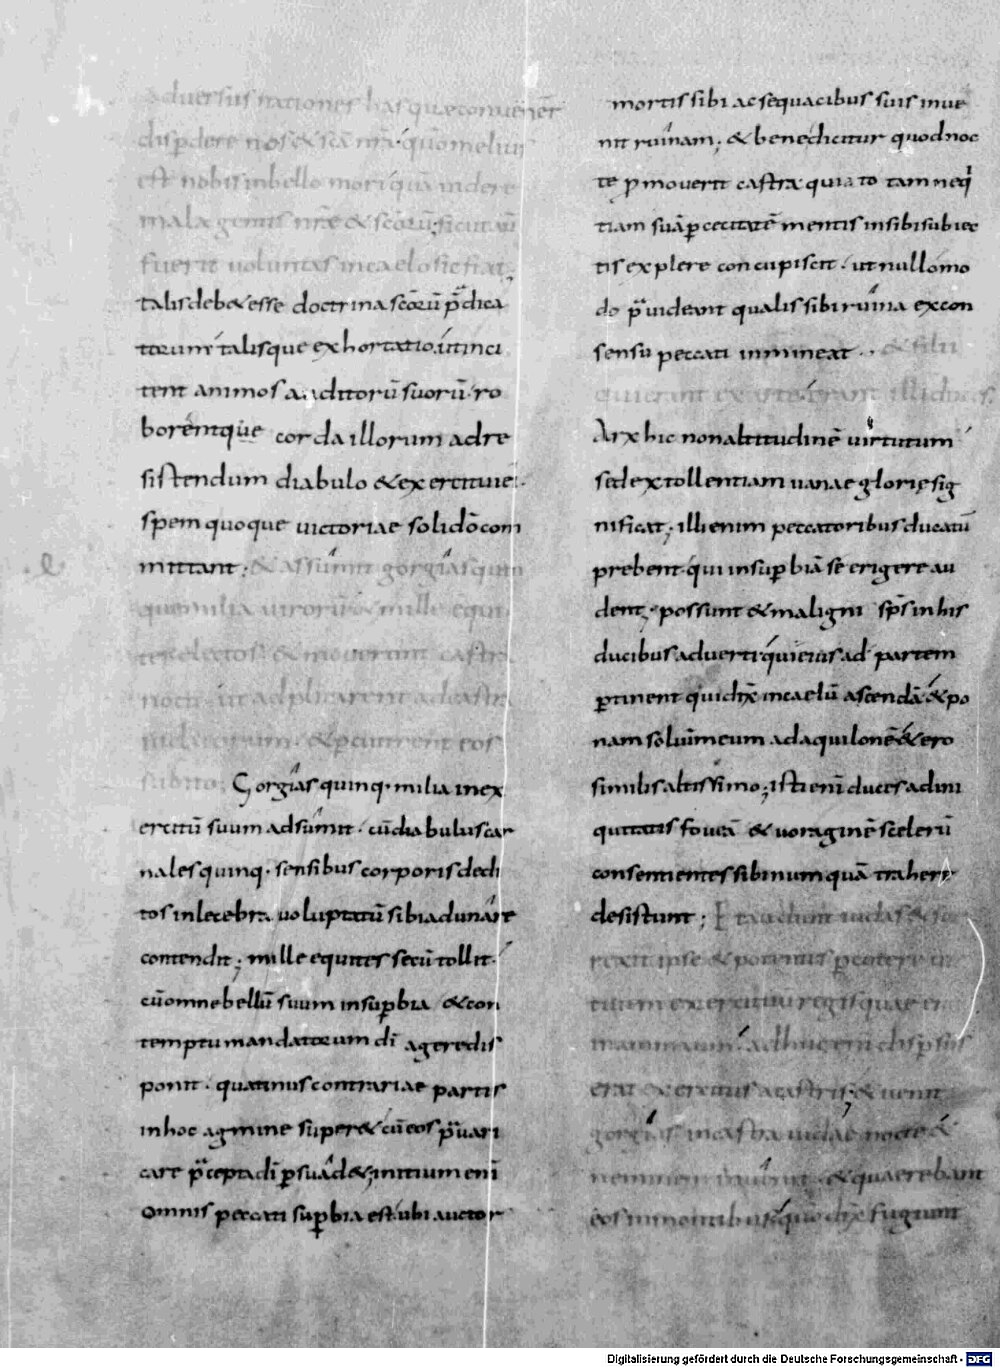 adversus nationes has quae convener̄
disp̄dere nos & sc̄a nr̄a · qūo melius
est nobis in bello mori quā videre
mala gentis nr̄e & sc̄orū; sicut autē
fuerit voluntas in caelo sic fiat,
talis deb& esse doctrina sc̄orū p̄dica
torum talisque exhortatio, ut inci
tent animos auditorū suorū · ro
borentque corda illorum ad re
sistendum diabulo & exercitui ei ·
spem quoque victoriae solido com
mittant; & assūmit gorgias quin
que milia virorū & mille equi
tes electos · & moverunt castra
nocte · ut adplicarent ad castra
iudaeorum · & p̄cuterent eos
subito; Gorgias quinq· milia in ex
ercitū suum adsūmit · cū diabulus car
nales quinq· sensibus corporis dedi
tos inlecebra voluptatū sibi adunare
contendit; mille equites secū tollit ·
cū omne bellū suum in sup̄bia & con
temptu mandatorum dī agere dis
ponit · quatinus contrariae partis
in hoc agmine super& cū eos p̄vari
care p̄cepta dī p̄suad&; initium enī
omnis peccati sup̄bia est · ubi auctor
mortis sibi ac sequacibus suis inve
nit ruinam; & bene dicitur quod noc
te p̄moverit castra quia totam neq̄
tiam suā p̄ cecitatē mentis in sibi subiec
tis explere concupiscit · ut nullo mo
do p̄videant qualis sibi ruina ex con
sensu peccati inmineat · & filii
qui erant ex arce erant illi duces
Arx hic non altitudinē virtutum
sed extollentiam vanae glorię sig
nificat; illi enim peccatoribus ducatū
prebent qui in sup̄biā se erigere au
dent; possunt & maligni sp̄s in his
ducibus adverti qui eius ad partem
p̄tinent qui dix̄ in caelū ascendā & po
nam solium meum ad aquilonē & ero
similis altissimo; isti enī duces ad ini
quitatis foveā & voraginē scelerū
consentientes sibi numquā trahere
desistunt; Et audivit iudas & sur
rexit ipse & potentes p̄cutere vir
tutum exercituū regis quae er
in ammaum · adhuc enī disp̄sus
erat exercitus a castris; & venit
gorgias in castra iudae nocte &
neminem invenit · & quaerebant
eos in montibus; quō dix̄ fugiunt